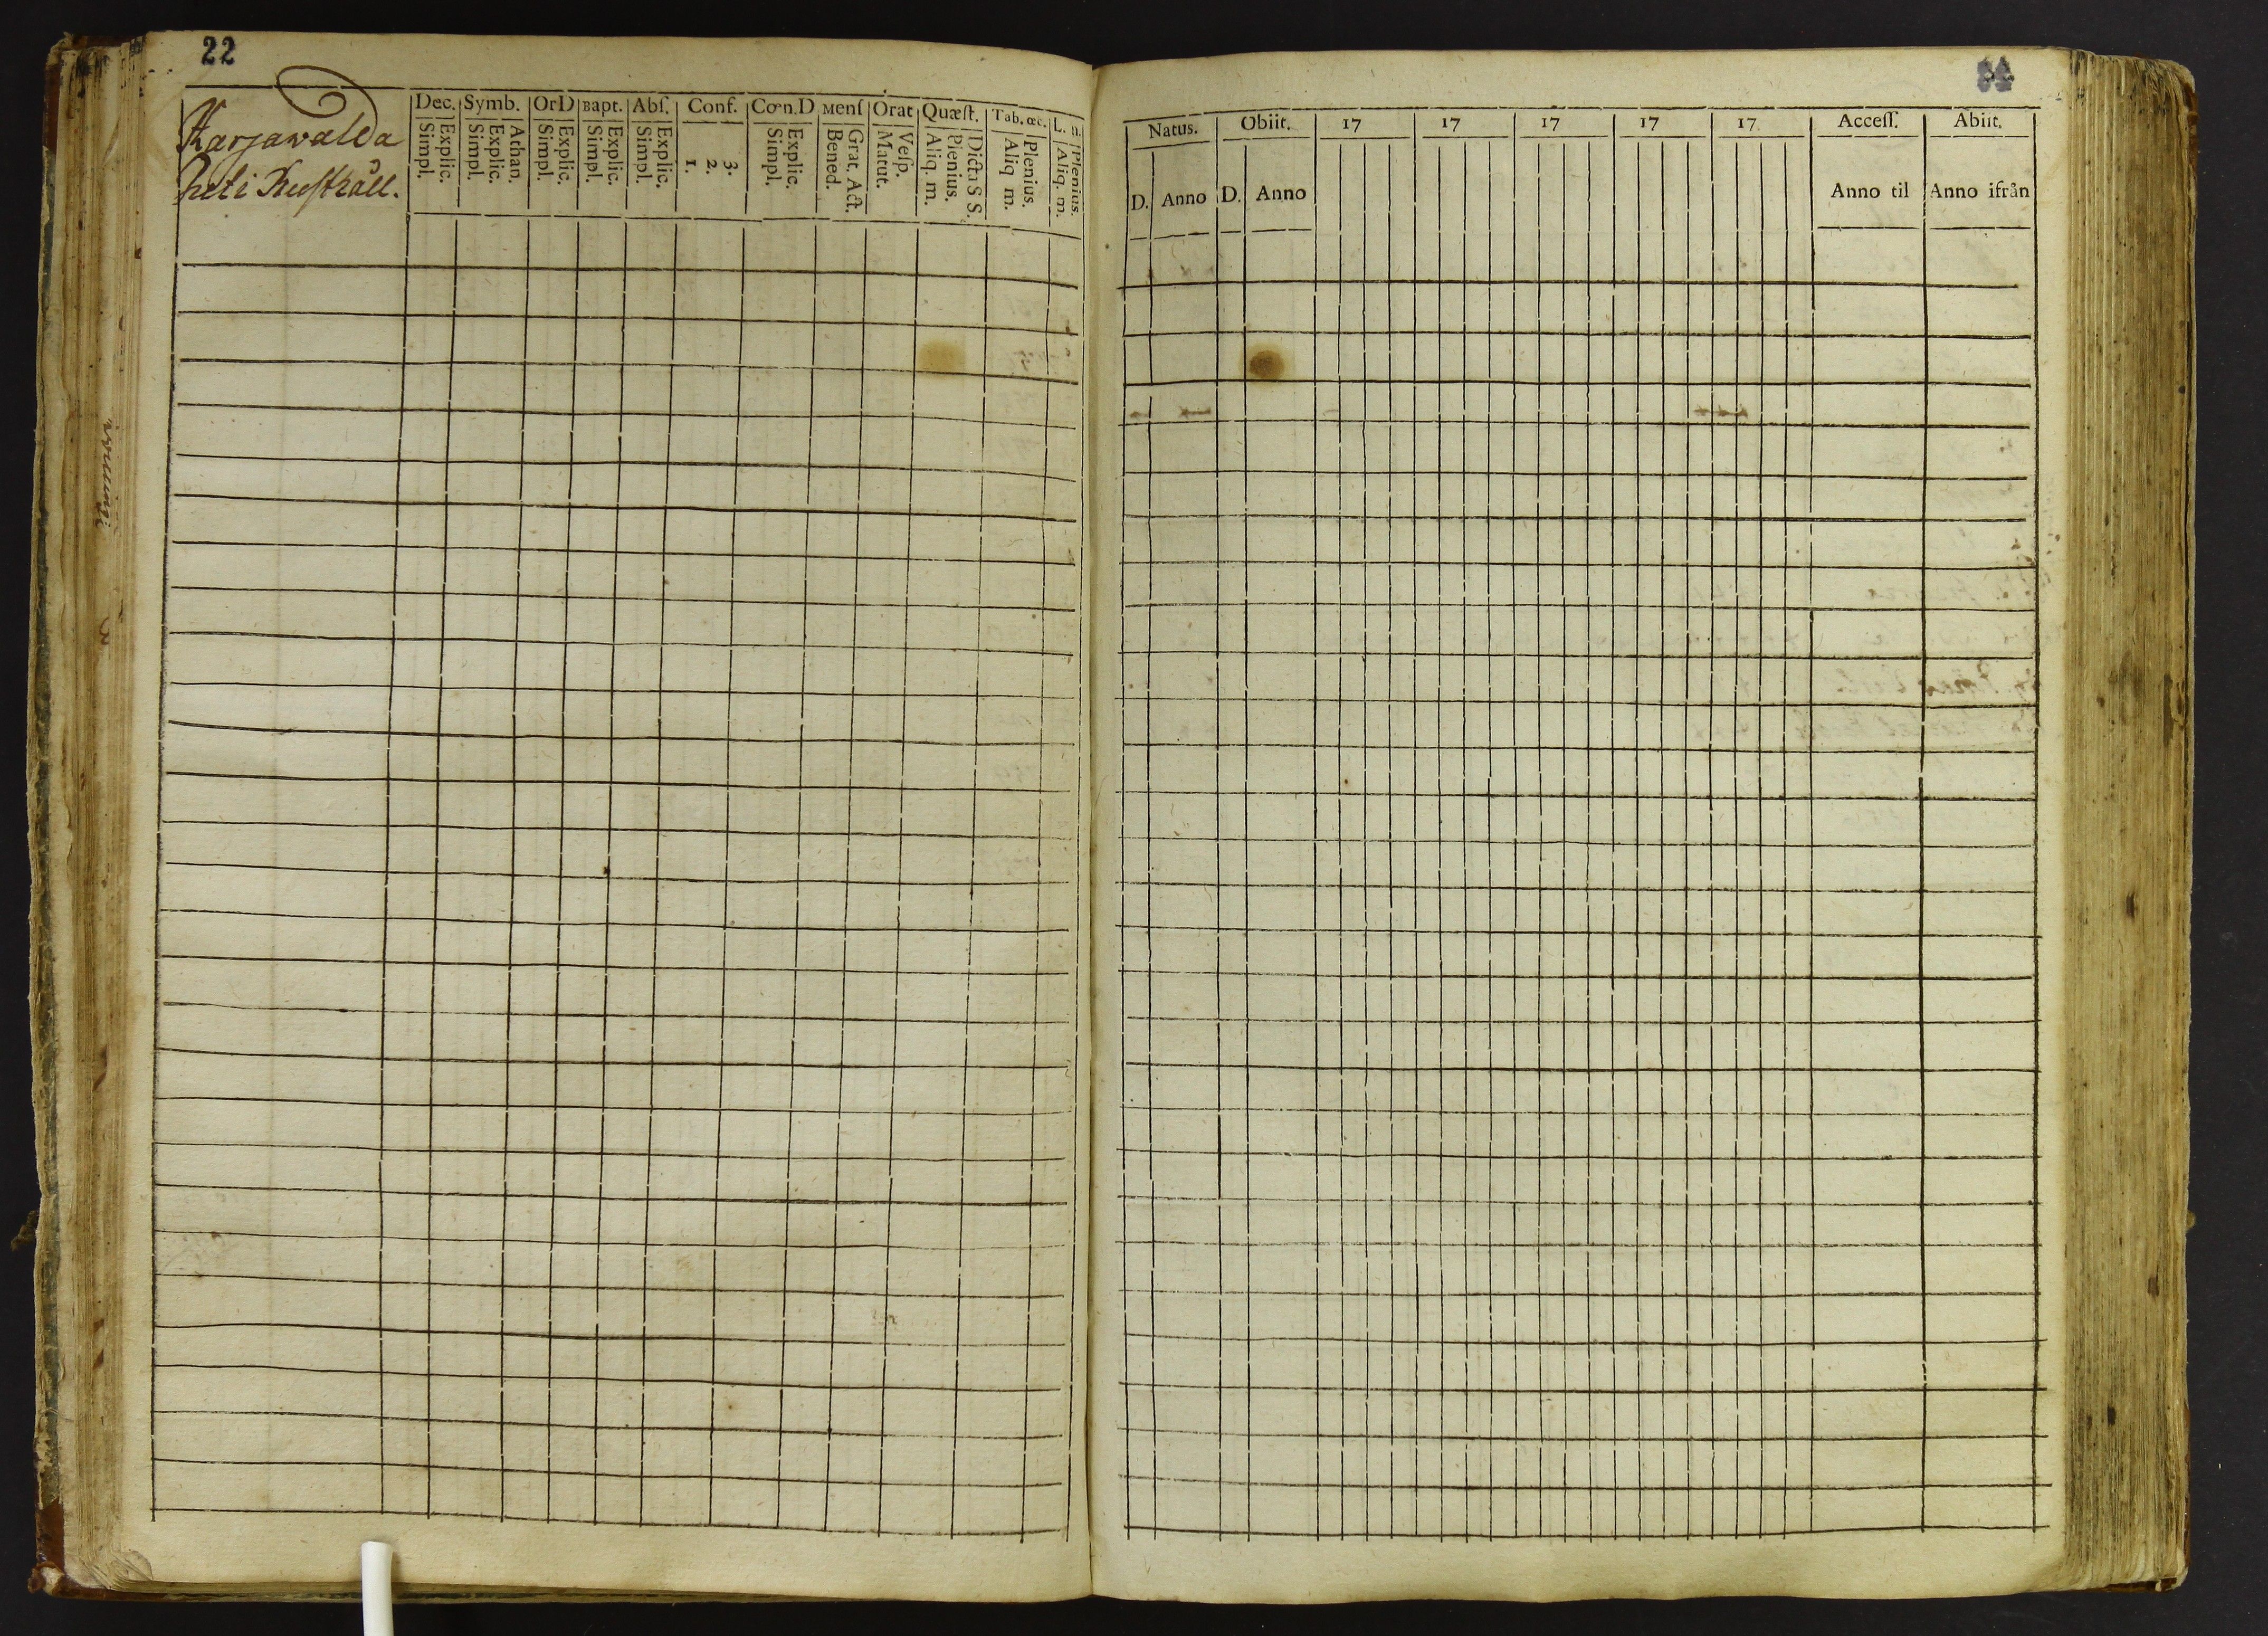 22
Karjawalda
heli Rusthåll.
Dec. Symb. OrD Bapt. Abſ. Conf. Cœn.D Menſ Orat Quæſt. Tab. œc. L. n.
Explic. Simpl. Athan. Explic. Simpl. Explic. Simpl. Explic. Simpl. Explic. Simpl. 3. 2. 1. Explic. Simpl. Grat. Act. Bened. Veſp. Matut. Dicta S S. Plenius. Aliq. m. Plenius. Aliq m. Plenius. Aliq. m.
Natus. Obiit. 17 17 17 17 17 Acceſſ. Abiit.
D. Anno D. Anno Anno til Anno ifrån